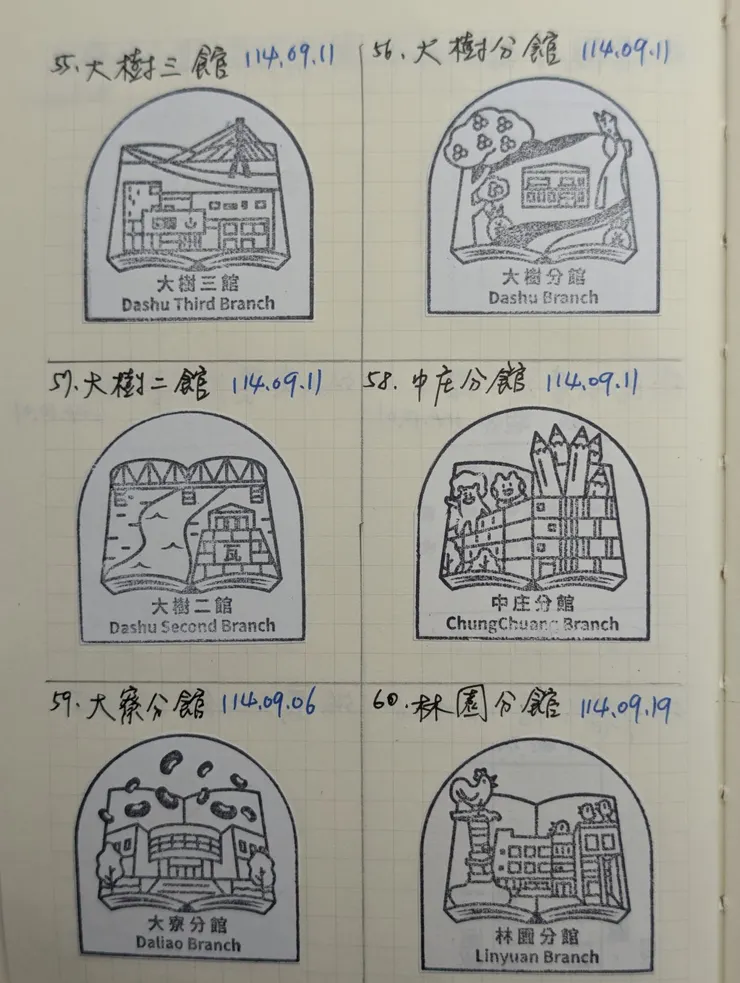 55. 大樹三館 114.09.11
大樹三館
Dashu Third Branch
56. 大樹分館 114.09.11
大樹分館
Dashu Branch
57. 大樹二館 114.09.11
瓦
大樹二館
Dashu Second Branch
58. 中庄分館 114.09.11
中庄分館
ChungChuang Branch
59. 大寮分館 114.09.06
大寮分館
Daliao Branch
60. 林園分館 114.09.19
林園分館
Linyuan Branch